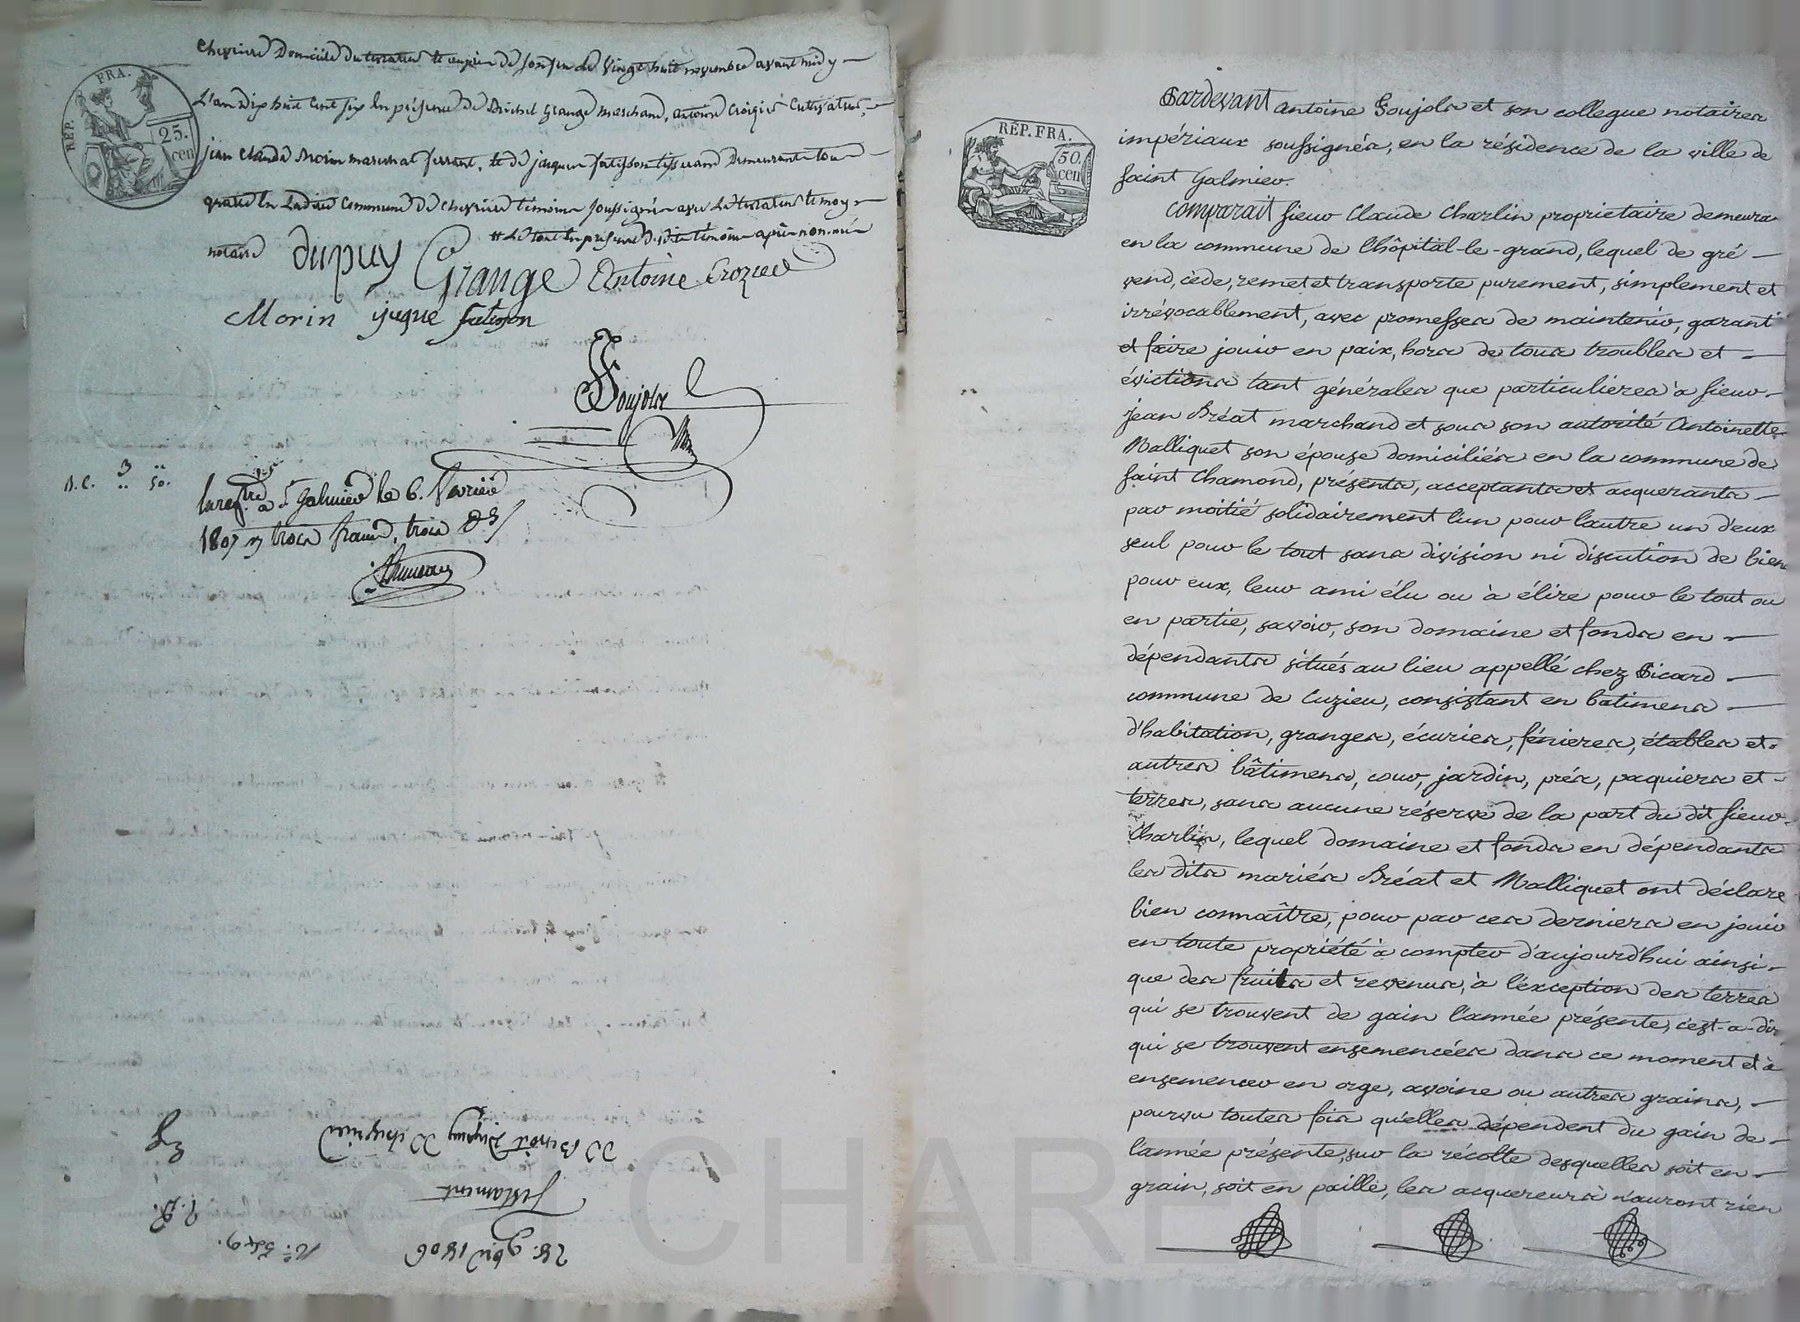 chevrieres Domicile du testateur le vingt huit novembre avant midy
L'an Dix huit Cent six En présence de Grange Marchand, Antoine Crozier Cultivateur,
jean Claude Morin marechal ferrant, et de jacques fatisson tisserand Demeurants tous
quatre En Ladite Commune De Chevrieres témoins soussignés avec Le testateur et moy
notaire
# Le tout En présence desdits temoins après nommés
dupuy Grange Antoine Crozier
Morin jaque fatison
Goujola
D.C. 3 50.
Enregtré a St Galmier le 6. fevrier
1807 trois francs, trois
28. 9bre 1806
N° 549.
Testament
De Benoit Dupuy De chevrieres
REP. FRA.
25.
cen
RÉP. FRA.
50.
cen
Pardevant Antoine Goujola et son collegue notaires
impériaux soussignés, en la résidence de la ville de
Saint Galmier.
Comparait sieur Claude Charlin proprietaire demeura
en la commune de l'hôpital-le-grand, lequel de gré
vend, cède, remet et transporte purement, simplement et
irrévocablement, avec promesses de maintenir, garanti
et faire jouir en paix, hors de tous troubles et
évictions tant générales que particulieres à sieur
jean Bréat marchand et sous son autorité Antoinette
Malliquet son épouse domiciliés en la commune de
Saint Chamond, présents, acceptants et acquerants
par moitié solidairement l'un pour l'autre un d'eux
seul pour le tout sans division ni discution de bien
pour eux, leur ami élu ou à élire pour le tout ou
en partie, savoir, son domaine et fonds en
dépendants situés au lieu appellé chez Sicard
commune de Cuzieu, consistant en batimens
d'habitation, granges, écuries, fénieres, étables et
autres bâtimens, cour, jardin, prés, paquiers et
terres, sans aucune réserve de la part du dit sieur
Charlin, lequel domaine et fonds en dépendants
les dits mariés Bréat et Malliquet ont déclaré
bien connaître, pour par ces derniers en jouir
en toute propriété à compter d'aujourd'hui ainsi
que des fruits et revenus, à l'exception des terres
qui se trouvent de gain l'année présente, c'est-a-dir
qui se trouvent ensemencées dans ce moment et à
ensemencer en orge, avoine ou autres grains,
pourvu toutes fois qu'elles dépendent du gain de
l'année présente, sur la récolte desquelles soit en
grain, soit en paille, les acquereurs n'auront rien
CHAREYRON